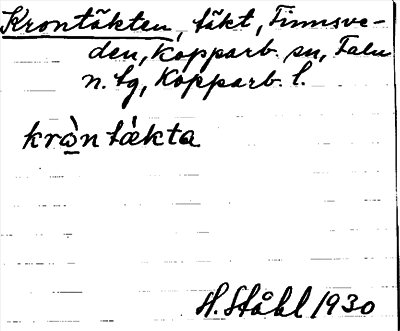 Krontäkten, täkt, Finnsve-
den, Kopparb. sn, Falu
n. tg, Kopparb. l.
krò̲n tàkta
H. Ståhl 1930